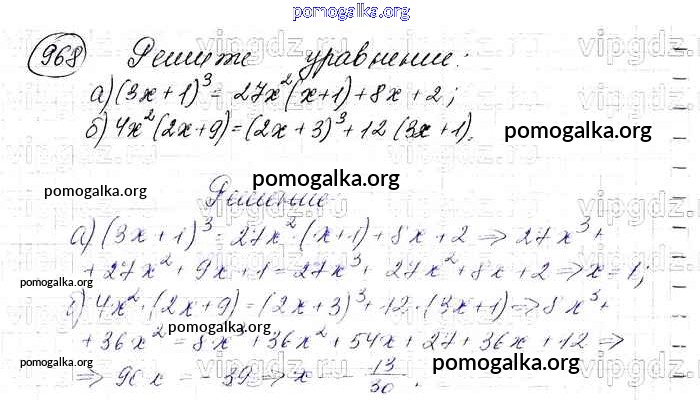 pomogalka.org
968 Решите уравнение:
а) (3x + 1)³ = 27x²(x+1) + 8x + 2;
б) 4x²(2x+9) = (2x + 3)³ + 12(3x+1).
pomogalka.org
pomogalka.org
pomogalka.org
Решение
а) (3x + 1)³ = 27x² · (x+1) + 8x + 2 => 27x³ +
+ 27x² + 9x + 1 = 27x³ + 27x² + 8x + 2 => x = 1;
pomogalka.org
б) 4x² · (2x + 9) = (2x + 3)³ + 12 · (3x+1) => 8x³ +
pomogalka.org
+ 36x² = 8x³ + 36x² + 54x + 27 + 36x + 12 =>
pomogalka.org
pomogalka.org
=> 90x = - 39 => x = - 13/30.
vipgdz.ru vipgdz.ru vipgdz.ru